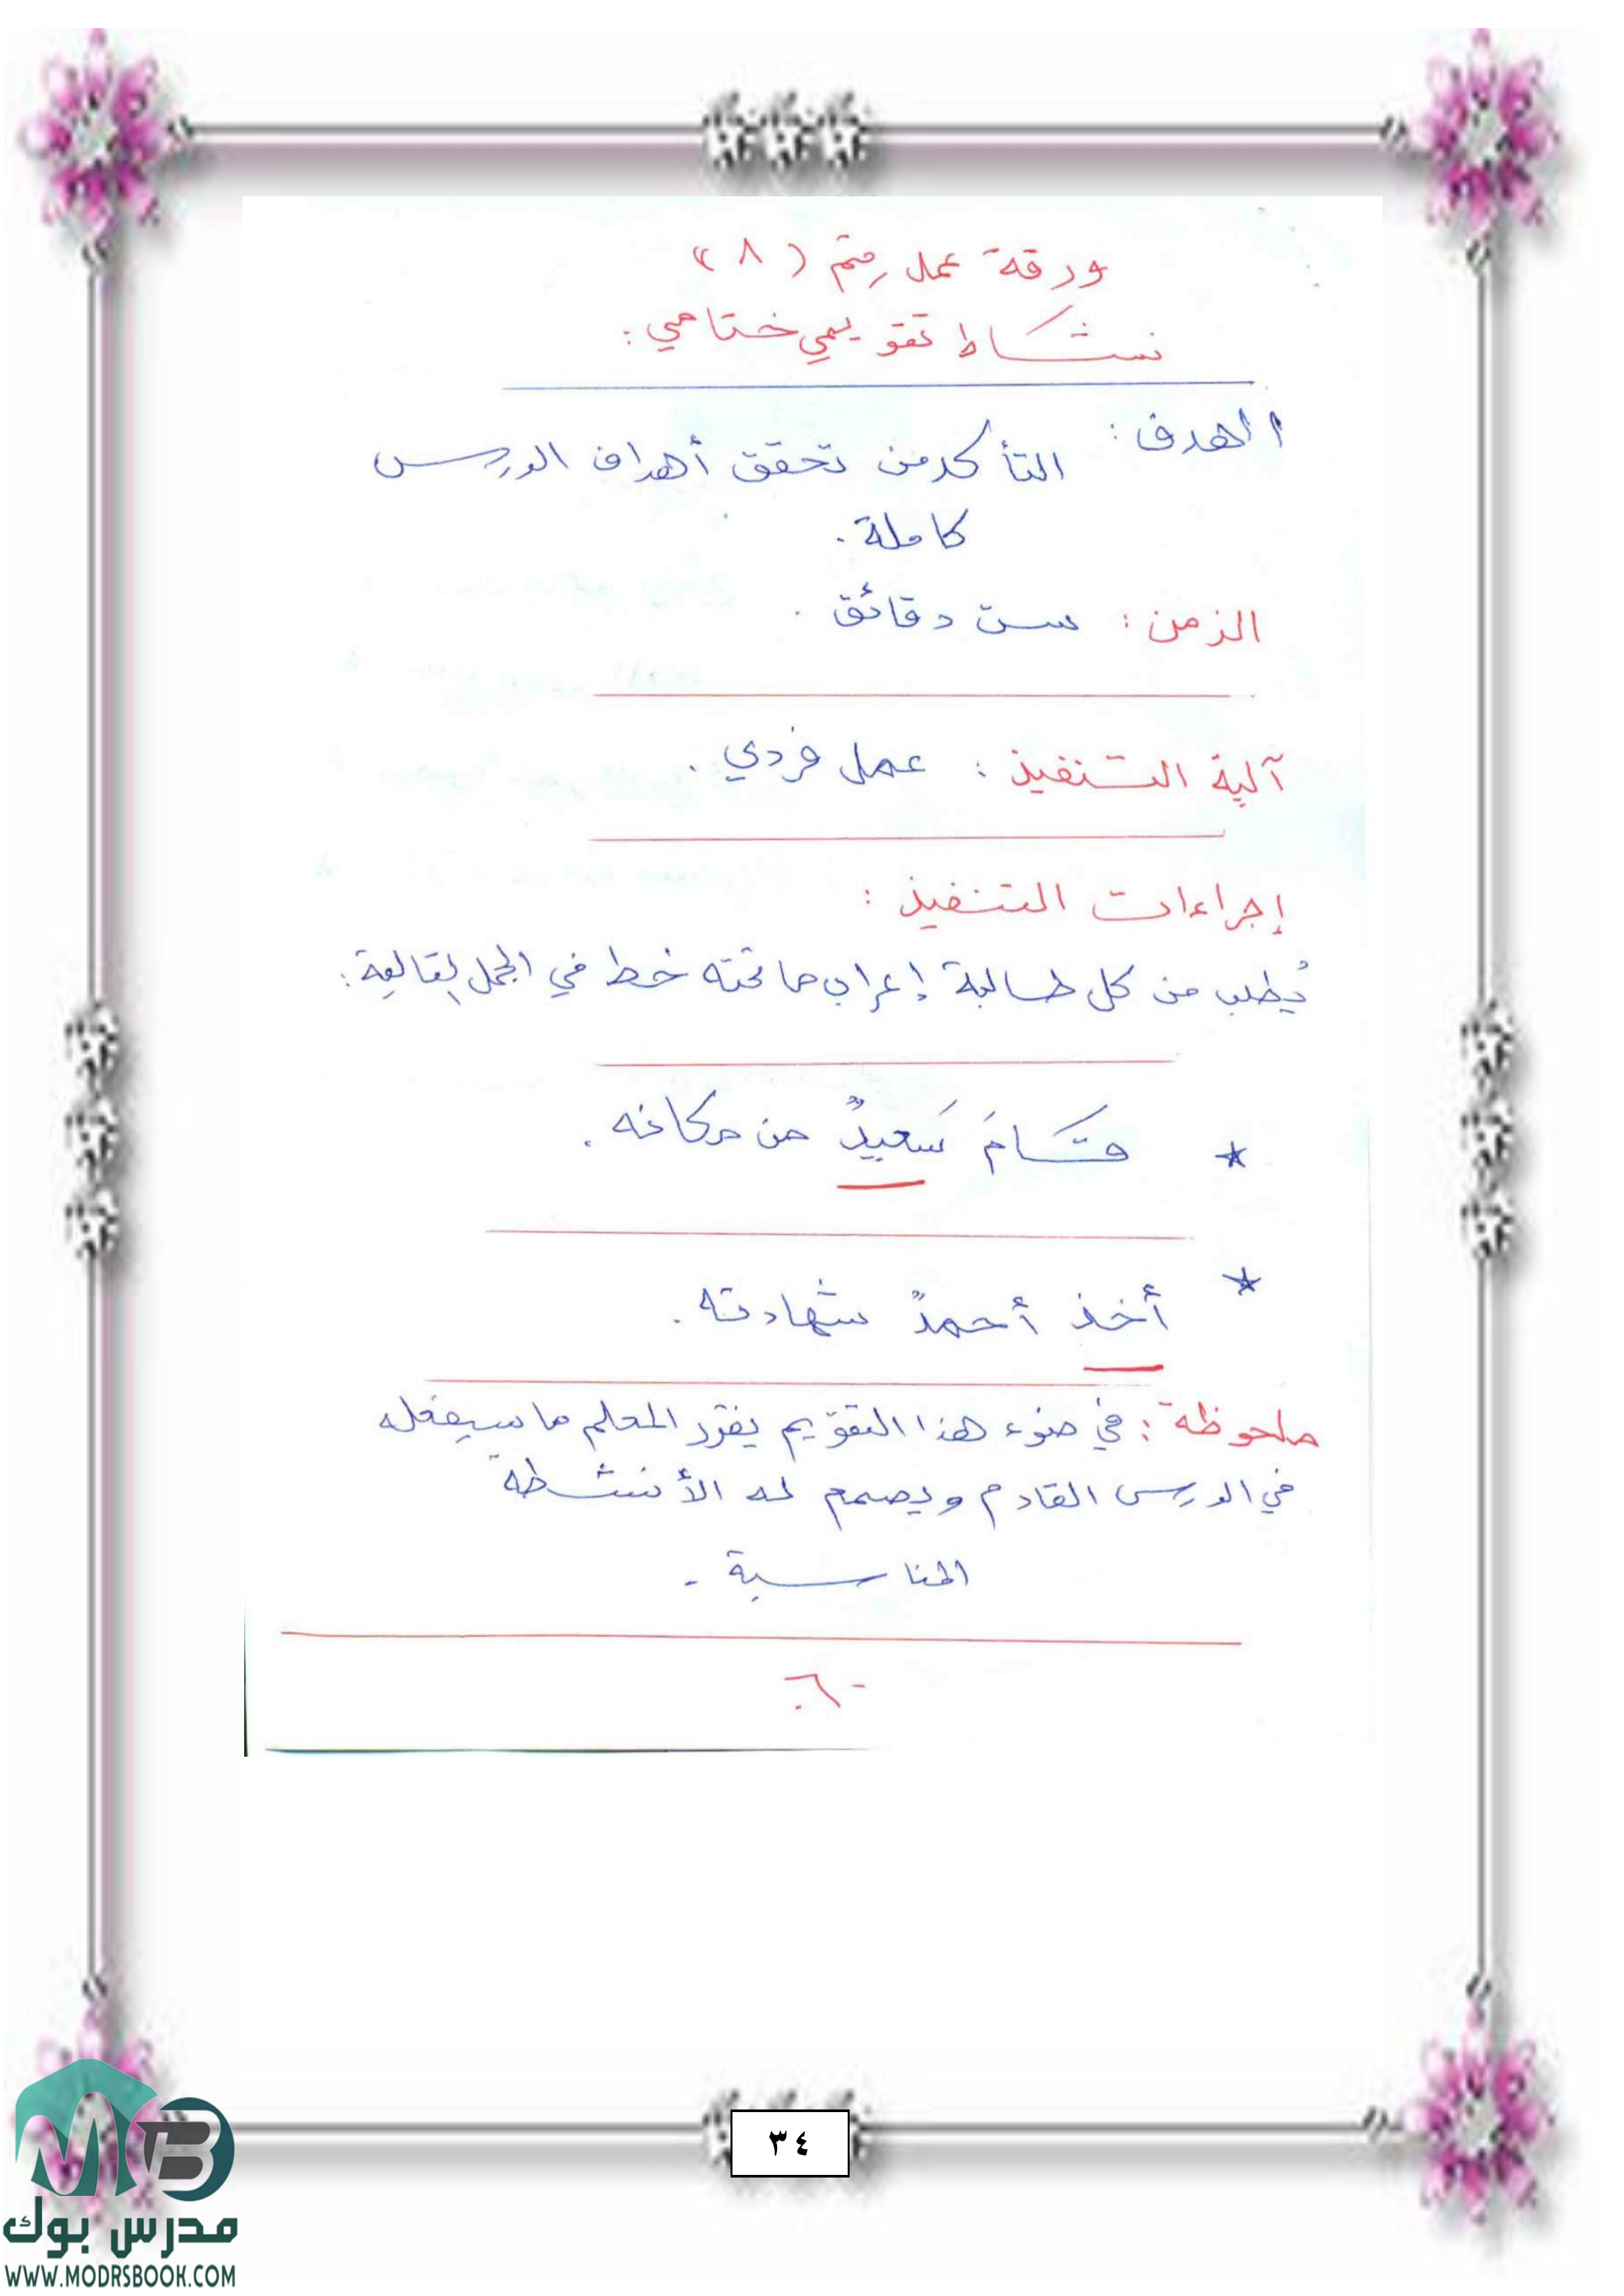 ورقة عمل رقم (٨)
نشاط تقويمي ختامي:
الهدف: التأكد من تحقق أهداف الدرس
كاملة.
الزمن: ست دقائق.
آلية التنفيذ: عمل فردي.
إجراءات التنفيذ:
يُطلب من كل طالبة إعراب ما تحته خط في الجمل التالية:
* قامَ سَعيدٌ من مكانه.
* أخذ أحمدٌ شهادته.
ملحوظة: في ضوء هذا التقوّيم يقرّر المعلم ما سيفعله
في الدرس القادم ويصمم له الأنشطة
المناسبة.
٣٤
مدرس بوك
WWW.MODRSBOOK.COM